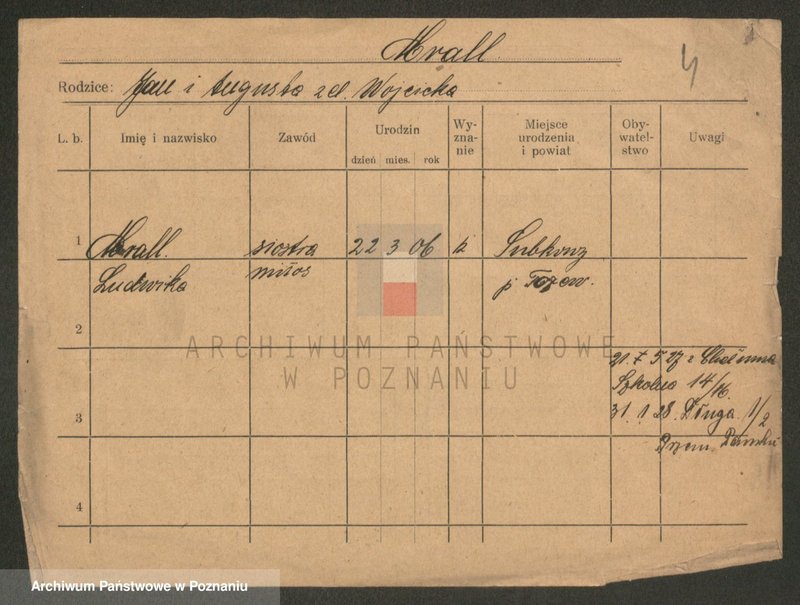 Mrall.
4
Rodzice: Jan i Augusta z d. Wojcicka
L. b. Imię i nazwisko Zawód Urodzin Wy-zna-nie Miejsce urodzenia i powiat Oby-watel-stwo Uwagi
dzień mies. rok
1 Mrall. siostra 22 3 06 k Subkowy
Ludwika miłos p Tczew.
2
ARCHIWUM PAŃSTWOWE
W POZNANIU
21. 5 27 z Chełmna
Szkolna 14/16
3 31. 1 28. Długa 1/2
Przem.
4
Archiwum Państwowe w Poznaniu